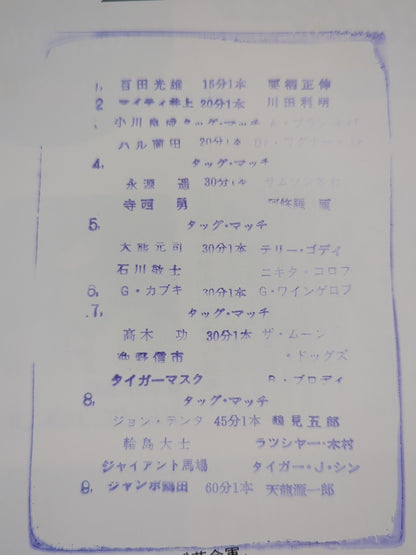 1, 百田光雄 15分1本 栗栖正伸
2 マイティ井上 20分1本 川田利明
小川良成 タッグ・マッチ
ハル薗田 20分1本
4. タッグ・マッチ
永源 遥 30分1本 サムソン冬木
寺西 勇 阿修羅 原
5. タッグ・マッチ
大熊元司 30分1本 テリー・ゴディ
石川敬士 ニキタ・コロフ
6, G・カブキ 30分1本 G・ワインゲロフ
.7, タッグ・マッチ
高木 功 30分1本 ザ・ムーン
・ドッグズ
タイガーマスク B・ブロディ
8, タッグ・マッチ
ジョン・テンタ 45分1本 鶴見五郎
輪島大士 ラッシャー・木村
ジャイアント馬場 タイガー・J・シン
9, ジャンボ鶴田 60分1本 天龍源一郎